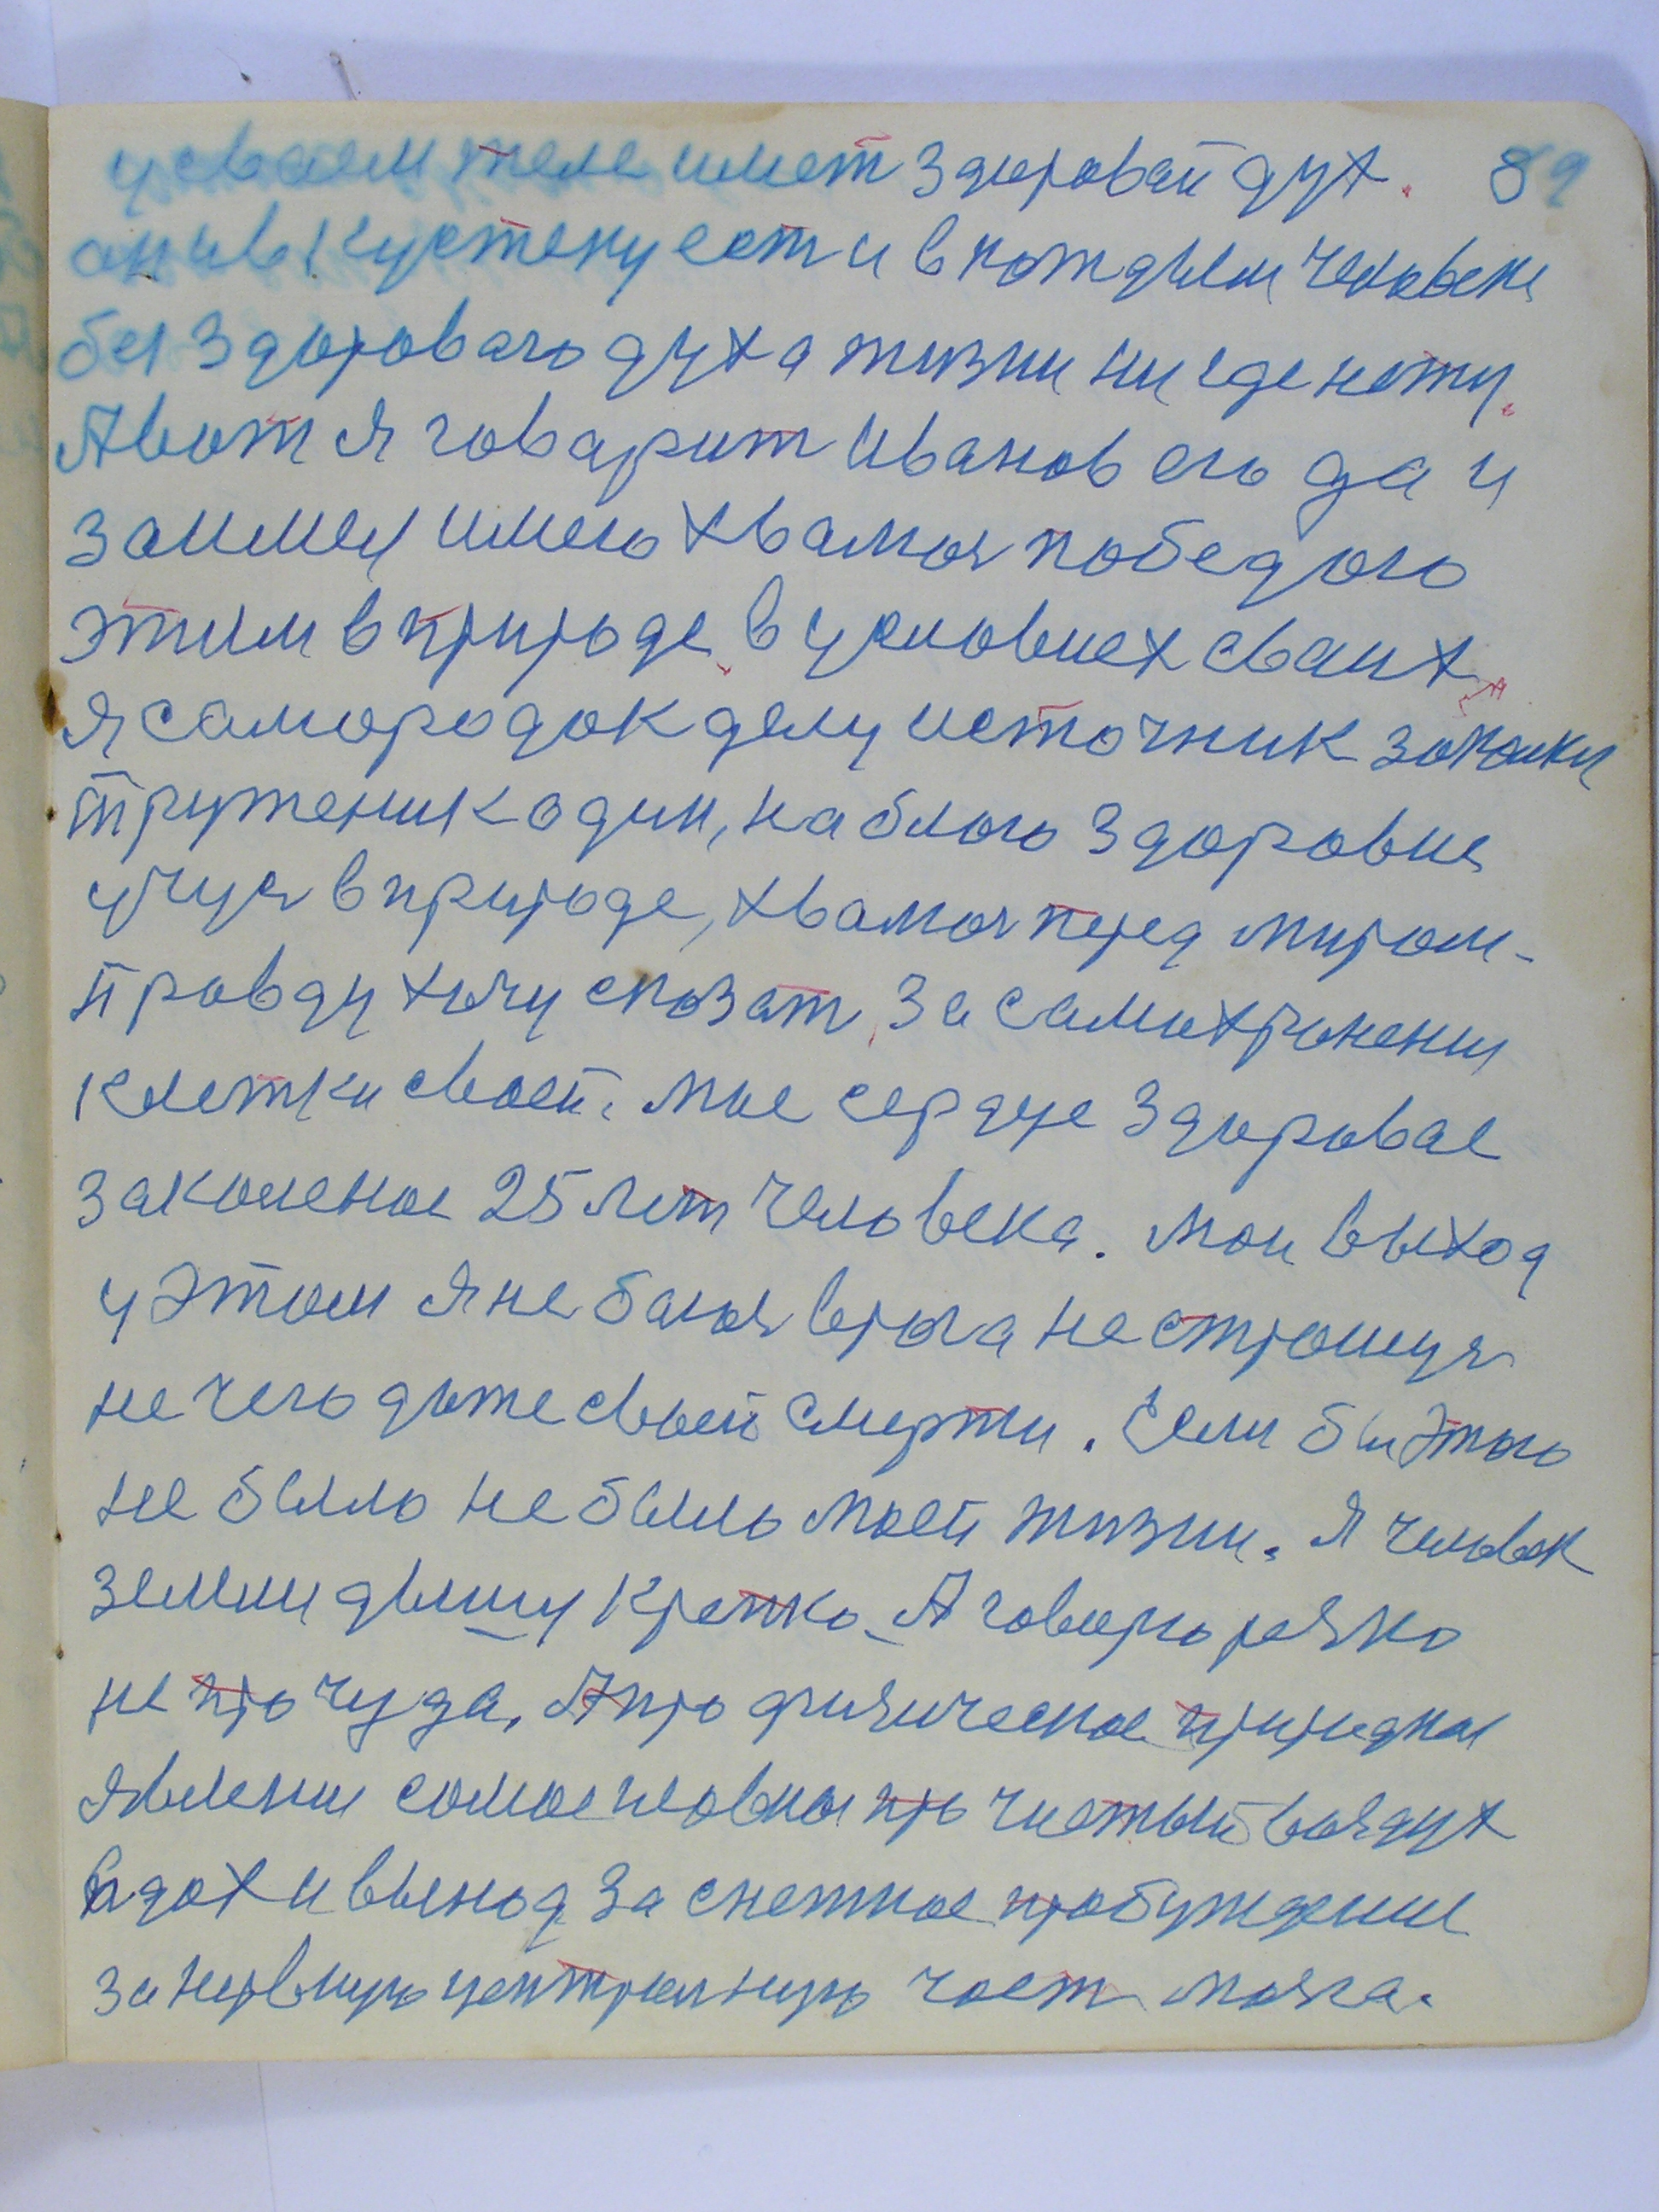 у сваем теле имет здоровай дух. 89
он и в Кустену ест и в каждым человеке
без здороваго духа жизни ни где нету.
А вот я говарит Иванов его да и
заимел имею хвалюя победою
этим в природе, в условиех сваих
я самородок делу источник закалки
труженик один, на благо здоровие
учуся в природе, хвалюя перед миром-
правду хочу сказат, за самихранени
клетки своей. мае сердце здоровае
закаленае 25 лет человека. Мои выход
у этом я не баюя врага не страшуся
не чего даже своей смерти. Если бы этого
не было не было маей жизни. Я человек
земли дышу крепко. А говорю резко
не про чуда, А про физическае природнае
явлени самае главнае про чистый воздух
вдох и выход, за снежнае пробуждение
за нервную центральную част мозга.